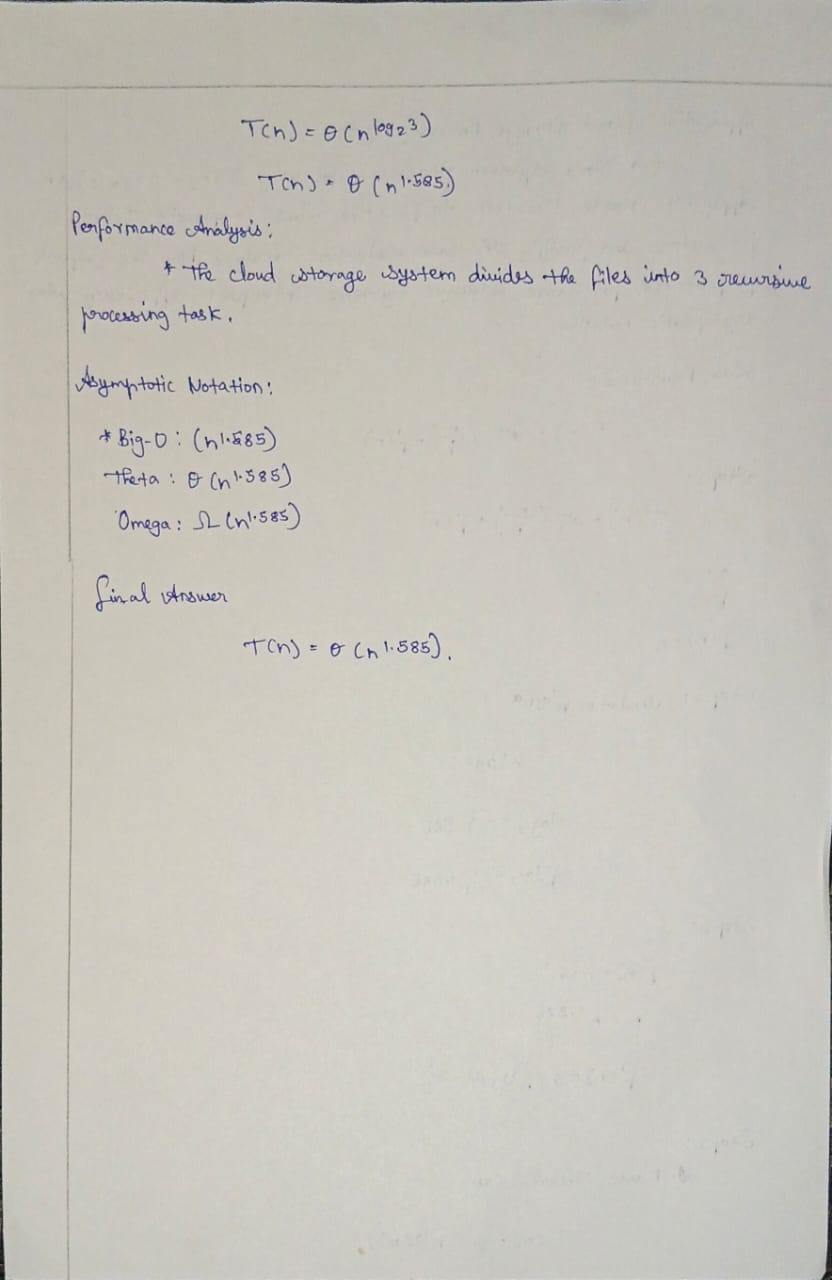 T(n) = θ(n^log₂3)
T(n) = θ(n^1.585)
Performance Analysis:
* The cloud storage system divides the files into 3 recursive
processing task.
Asymptotic Notation:
* Big-O: (n^1.585)
Theta: θ(n^1.585)
Omega: Ω(n^1.585)
Final Answer
T(n) = θ(n^1.585).